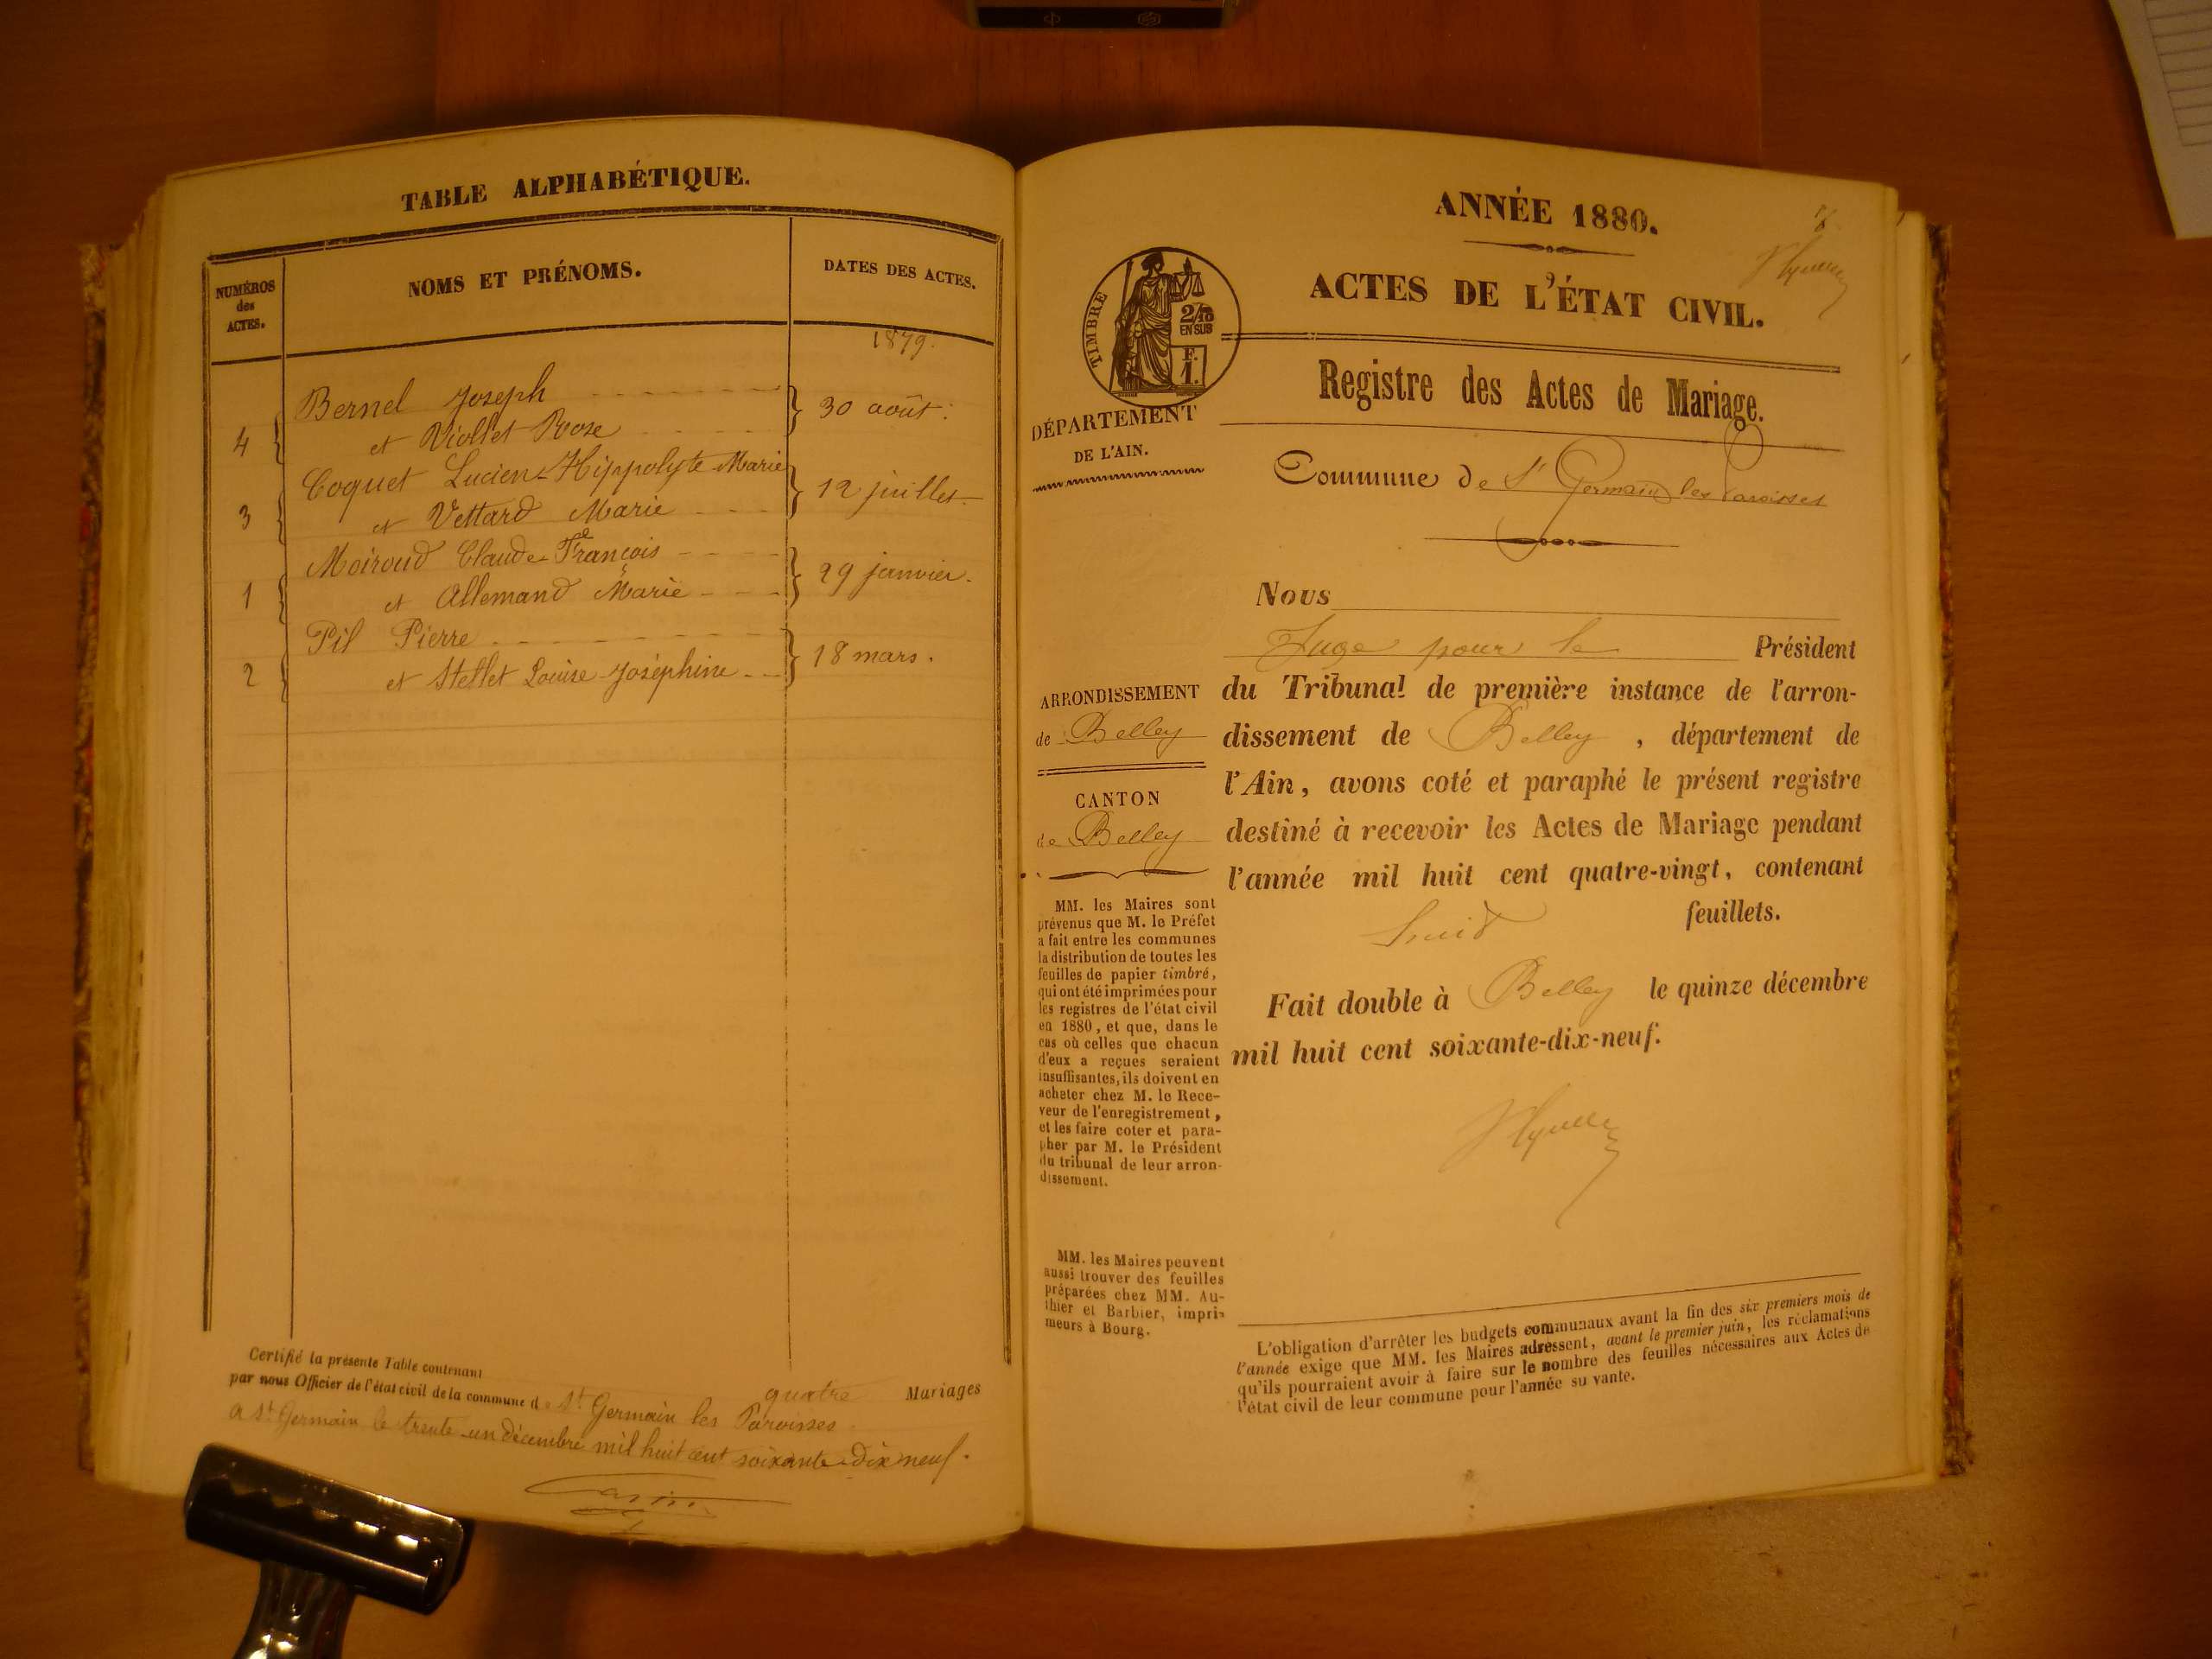 TABLE ALPHABÉTIQUE.
NUMÉROS
des
ACTES.
NOMS ET PRÉNOMS.
DATES DES ACTES.
1879.
Bernel Joseph
4
et Viollet Rose
30 août.
Coquet Lucien-Hippolyte-Marie
3
et Vettard Marie
12 juillet
Moiroud Claude-François
1
et Allemand Marie
29 janvier.
Pil Pierre
2
et Stetlet Louise-Joséphine
18 mars.
Certifié la présente Table contenant quatre Mariages
par nous Officier de l'état civil de la commune de St Germain les Paroisses.
A St Germain le trente-un décembre mil huit cent soixante-dix neuf.
ANNÉE 1880.
ACTES DE L'ÉTAT CIVIL.
TIMBRE
2/10
EN SUS
F.
1.
Registre des Actes de Mariage.
DÉPARTEMENT
DE L'AIN.
Commune de St Germain les Paroisses
Nous
Juge pour le Président
du Tribunal de première instance de l'arron-
dissement de Belley, département de
l'Ain, avons coté et paraphé le présent registre
destiné à recevoir les Actes de Mariage pendant
l'année mil huit cent quatre-vingt, contenant
huit feuillets.
Fait double à Belley le quinze décembre
mil huit cent soixante-dix-neuf.
ARRONDISSEMENT
de Belley
CANTON
de Belley
MM. les Maires sont
prévenus que M. le Préfet
a fait entre les communes
la distribution de toutes les
feuilles de papier timbré,
qui ont été imprimées pour
les registres de l'état civil
en 1880, et que, dans le
cas où celles que chacun
d'eux a reçues seraient
insuffisantes, ils doivent en
acheter chez M. le Rece-
veur de l'enregistrement,
et les faire coter et para-
pher par M. le Président
du tribunal de leur arron-
dissement.
MM. les Maires peuvent
aussi trouver des feuilles
préparées chez MM. Au-
thier et Barbier, impri-
meurs à Bourg.
L'obligation d'arrêter les budgets communaux avant la fin des six premiers mois de
l'année exige que MM. les Maires adressent, avant le premier juin, les réclamations
qu'ils pourraient avoir à faire sur le nombre des feuilles nécessaires aux Actes de
l'état civil de leur commune pour l'année su vante.